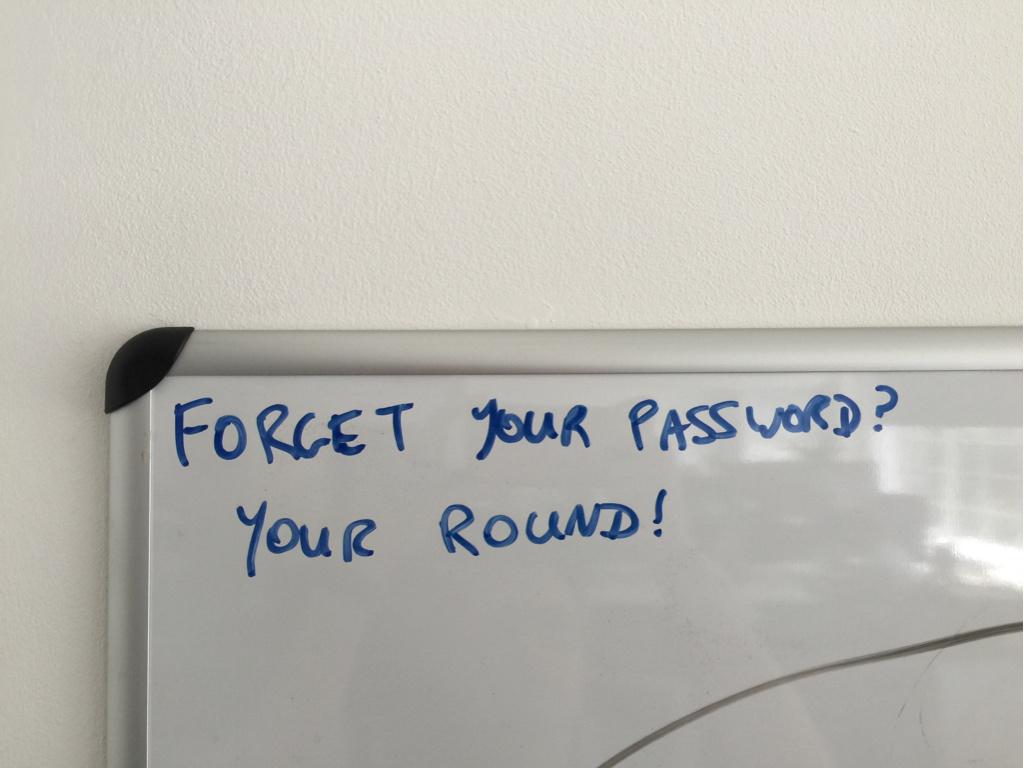 FORGET YOUR PASSWORD?
YOUR ROUND!